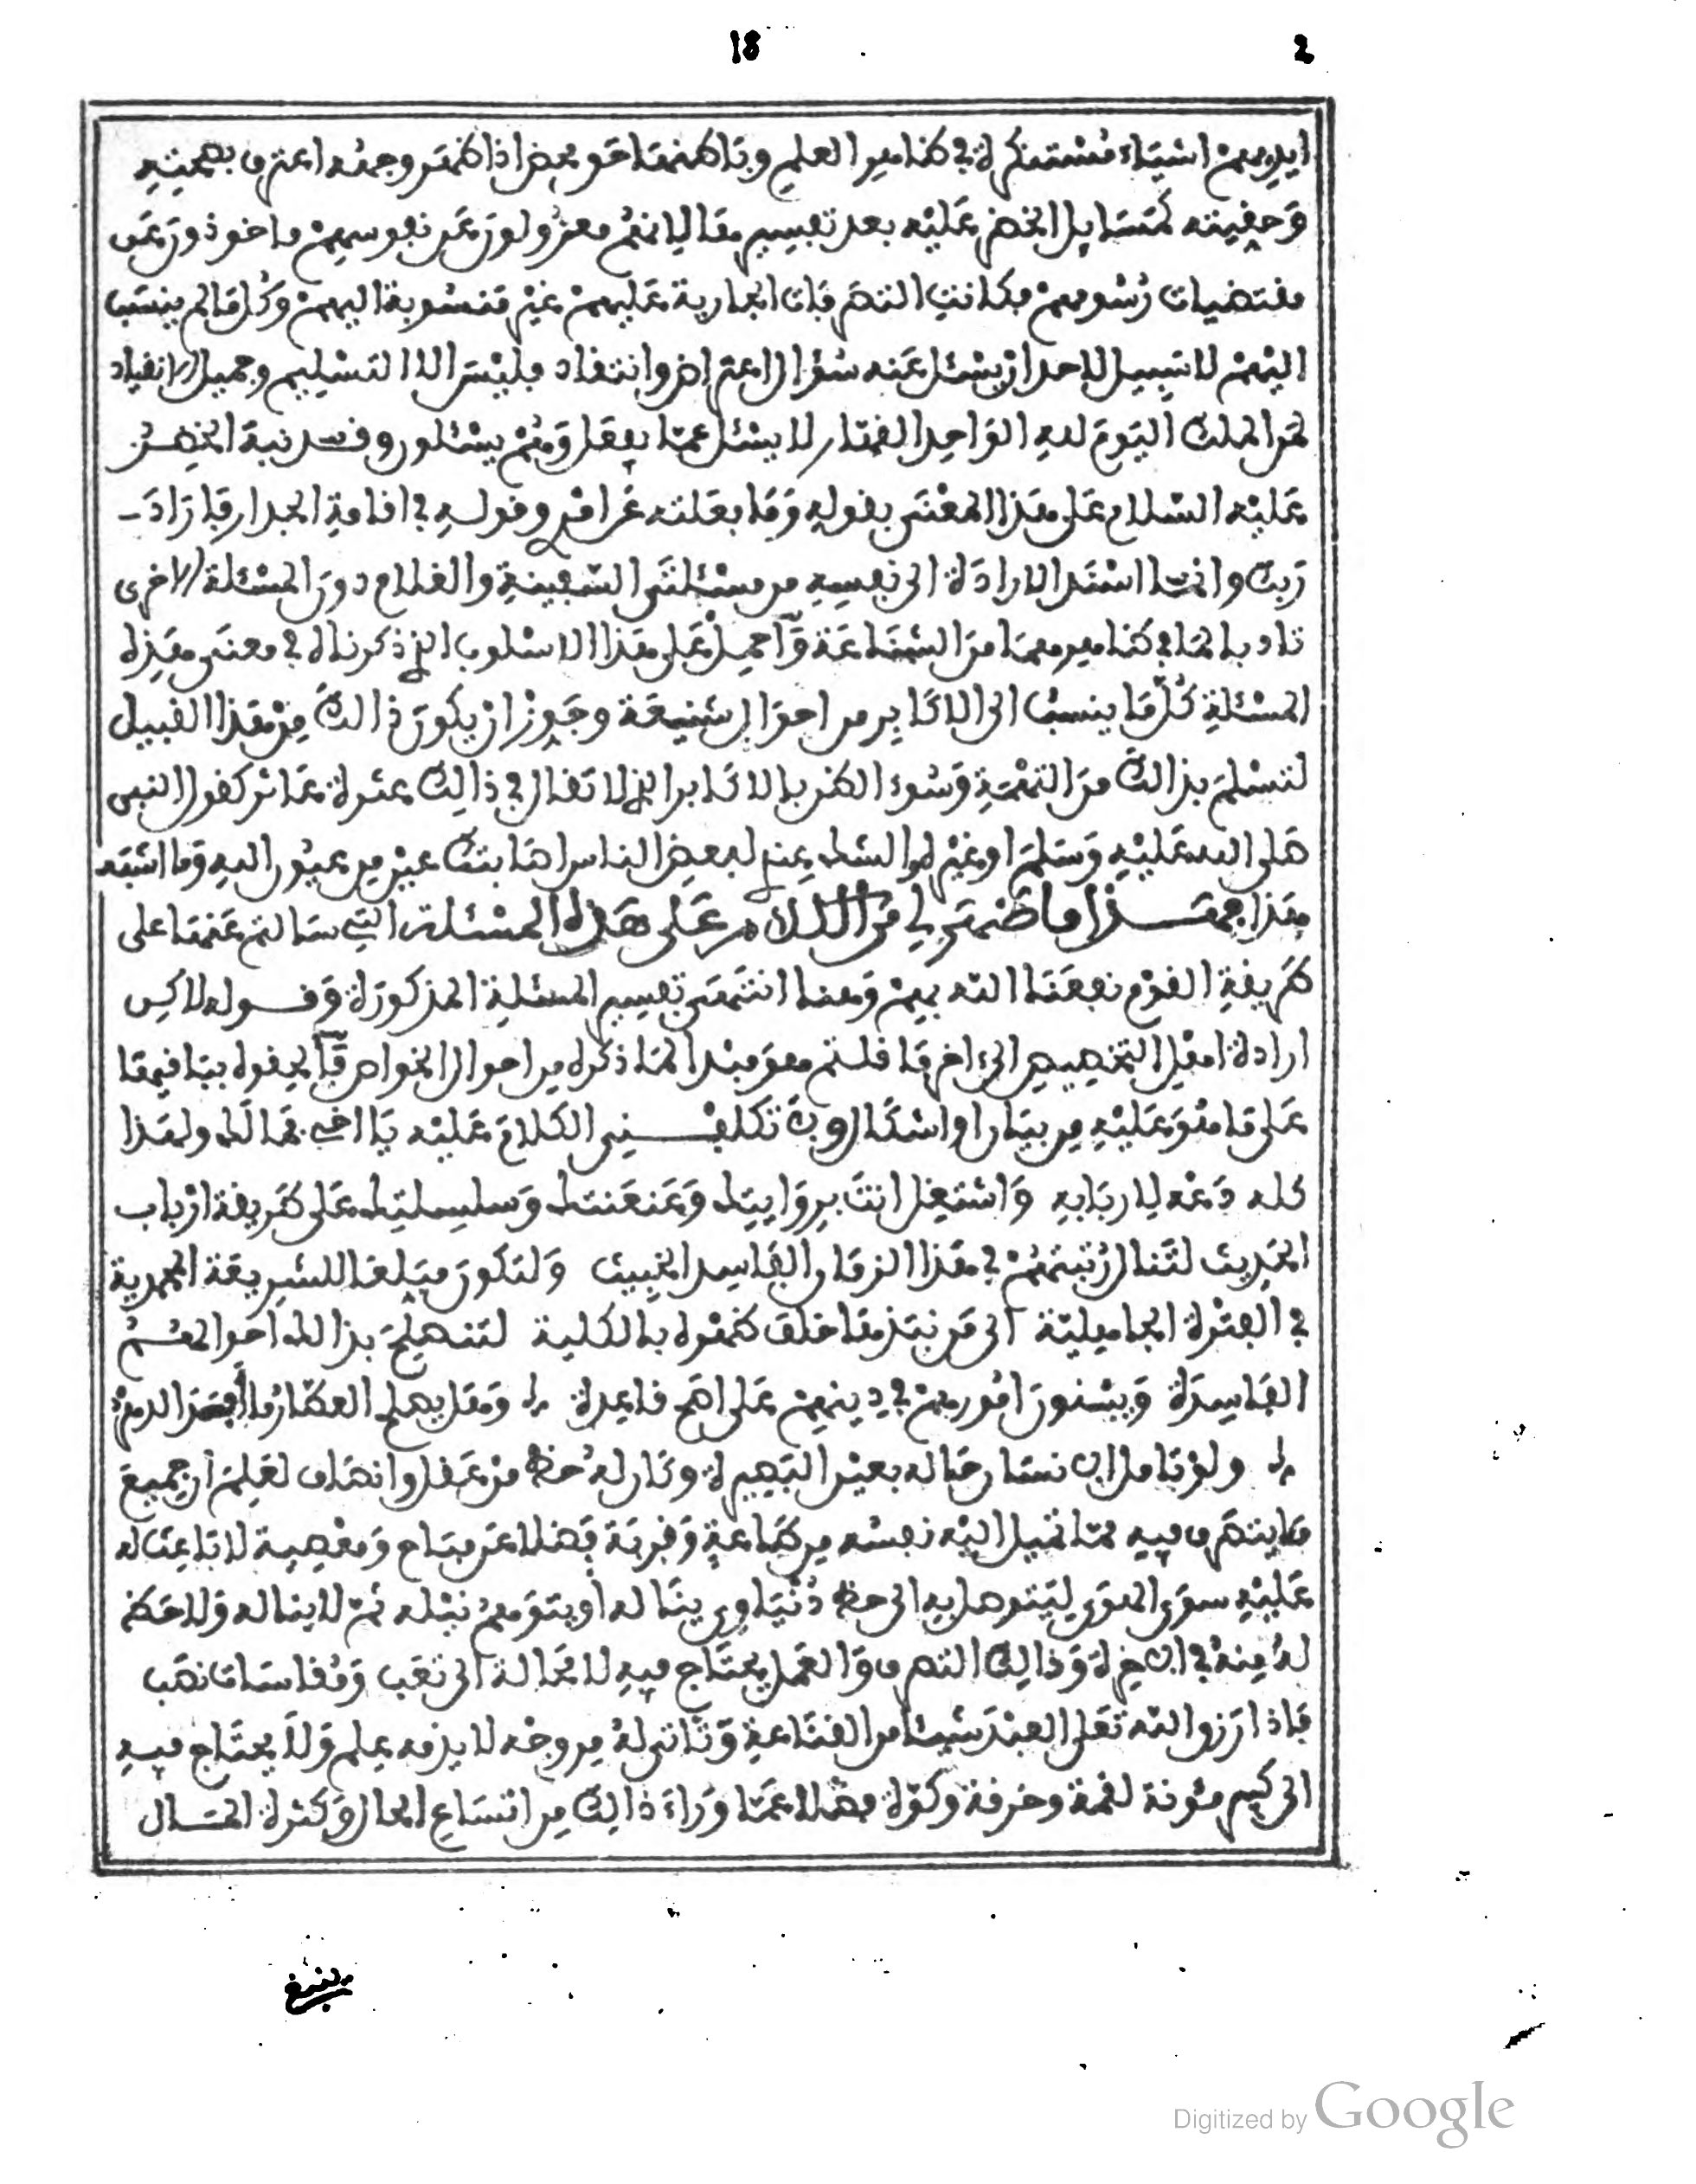 18 2
ايديهم اشياء مستنكرة في ظاهر العلم وباطنها حق محض اذا ظهر وجهه اعترف بصحته
وحقيقته كمسايل الخضر عليه بعد تفسيرها لانهم معزولون عن نفوسهم ماخوذون عن
مقتضيات رسومهم فكانت التصرفات الجارية عليهم غير منسوبة اليهم وكل ما لم ينسب
اليهم لا سبيل لاحد ان يسئل عنه سؤال اعتراض وانتقاد فليس الا التسليم وجميل الانقياد
لمن الملك اليوم لله الواحد القهار لا يسئل عما يفعل وهم يسئلون وقد نبه الخضر
عليه السلام على هذا المعنى بقوله وما فعلته عن امري وقوله في اقامة الجدار فاراد
ربك وانما اسند الارادة الى نفسه من مسئلتي السفينة والغلام دون المسئلة الاخرى
تادبا لما في ظاهرهما من الشناعة واحمل على هذا الاسلوب الذي ذكرناه في معنى هذه
المسئلة كل ما ينسب الى الاكابر من احوال شنيعة وجوز ان يكون ذالك من هذا القبيل
لتسلم بذالك من التهمة وسوء الظن بالاكابر الذي لا تقال في ذالك عثرة عاثر كقول النبي
صلى الله عليه وسلم او غيره الشك مني لبعض الناس اصابتك عين من عيون الله وما اشبه
هذا فهذا ما ظهر لي من الكلام على هذه المسئلة التي سالتم عنها على
طريقة القوم نفعنا الله بهم وهنا انتهى تفسير المسئلة المذكورة وقوله لاكن
ارادة اهل التخصيص الى اخرها قلتم هو مبدا لما ذكره من احوال الخواص فالحقوله بها فيها
على ما هو عليه من بيان او اشكال ولا تكلفني الكلام عليه يا اخي فما لك ولهذا
كله دعه لاربابه واشتغل انت بروايتك وعنعنتك وسلسلتك على طريقة ارباب
الحديث لتنال رتبتهم في هذا الزمان الفاسد الخبيث ولتكون مبلغا للشريعة المحمدية
في الفترة الجاهلية الى من نبذها خلف ظهره بالكلية لتنصلح بذالك احوالهم
الفاسدة ويبنون امورهم في دينهم على اصح قاعدة وهل يصلح العطار ما افسد الدهر
ولو تامل الانسان حاله بعين البصيرة وكان له حظ من عقل وانصاف لعلم ان جميع
ما يتصرف فيه مما تميل اليه نفسه من طاعة وقربة فضلا عن مباح ومعصية لا باعث له
عليه سوى الهوى ليتوصل به الى حظ دنياوي يناله او يتوهم نيله ثم لا يناله ولا حظ
له منه في الاخرة وذالك التصرف والعمل يحتاج فيه لا محالة الى تعب ومقاسات نصب
فاذا رزق الله تعلى العبد شيئا من القناعة وتاتى له من وجه لا يذمه علم ولا يحتاج فيه
الى كبير مئونة لقمة وخرقة وكوة فضلا عما وراء ذالك من اتساع الحال وكثرة المال
Digitized by Google